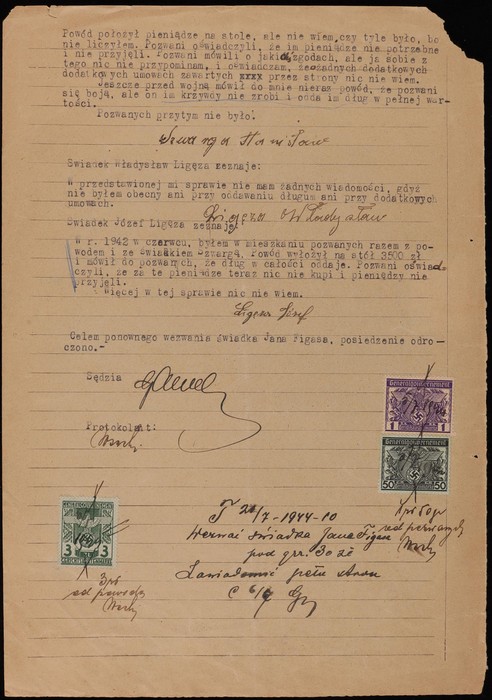 Powód położył pieniądze na stole, ale nie wiem, czy tyle było, bo
nie liczyłem. Pozwani oświadczyli, że im pieniądze nie potrzebne
i nie przyjęli. Pozwani mówili o jakichś zgodach, ale ja sobie z
tego nic nie przypominam, i oświadczam, że o żadnych dodatkowych
dodatkowych umowach zawartych xxxx przez strony nic nie wiem.
Jeszcze przed wojną mówił do mnie nieraz powód, że pozwani
się boją, ale on im krzywdy nie zrobi i odda im dług w pełnej war-
tości.
Pozwanych przytym nie było.
Szwarga Stanisław
Świadek Władysław Ligęza zeznaje:
W przedstawionej mi sprawie nie mam żadnych wiadomości, gdyż
nie byłem obecny ani przy oddawaniu długu ani przy dodatkowych
umowach.
Ligęza Władysław
Świadek Józef Ligęza zeznaje:
W r. 1942 w czerwcu, byłem w mieszkaniu pozwanych razem z po-
wodem i ze świadkiem Szwargą. Powód wyłożył na stół 3500 zł
i mówił do pozwanych, że dług w całości oddaje. Pozwani oświad-
czyli, że za te pieniądze teraz nic nie kupi i pieniędzy nie
przyjęli.
Więcej w tej sprawie nic nie wiem.
Ligęza Józef
Celem ponownego wezwania świadka Jana Figasa, posiedzenie odro-
czono.-
Sędzia
Protokolant:
Generalgouvernement
1
Generalgouvernement
50 50
3 3
3 zł
od powoda
1 zł 50 gr
od pozwanych
/7-1944-10
Wezwać świadka Jana Figasa
pod grz. 30 zł
Zawiadomić